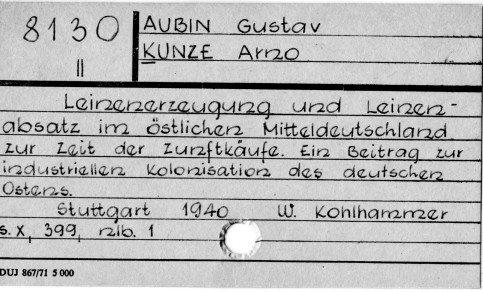 8130 AUBIN Gustav
II KUNZE Arno
Leinenerzeugung und Leinen-
absatz im östlichen Mitteldeutschland
zur Zeit der Zunftkäufe. Ein Beitrag zur
industriellen Kolonisation des deutschen
Ostens.
Stuttgart 1940 W. Kohlhammer
s. X, 399, nlb. 1
DUJ 867/71 5 000